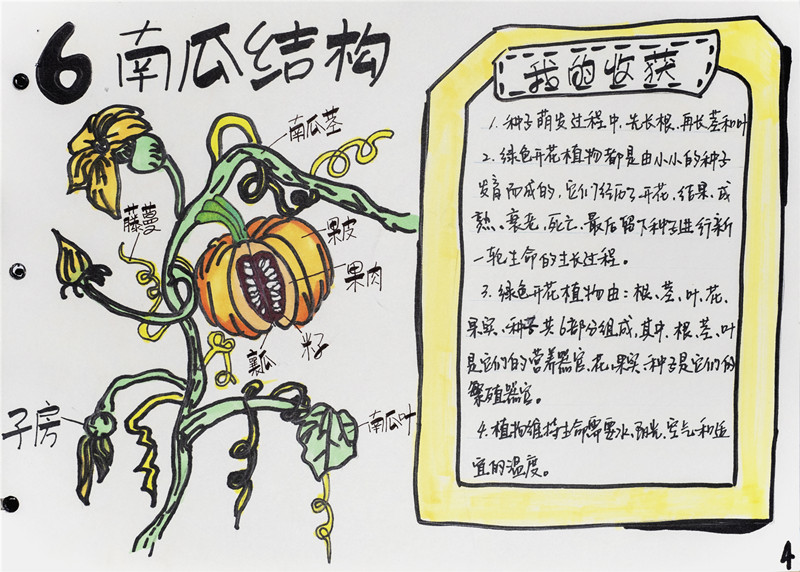 6 南瓜结构
南瓜茎
藤蔓
果皮
果肉
籽
瓤
子房
南瓜叶
我的收获
1. 种子萌发过程中，先长根，再长茎和叶
2. 绿色开花植物都是由小小的种子
发育而成的，它们经历了开花、结果、成
熟、衰老、死亡，最后留下种子进行新
一轮生命的生长过程。
3. 绿色开花植物由：根、茎、叶、花、
果实、种子共6部分组成，其中，根、茎、叶
是它们的营养器官、花、果实、种子是它们的
繁殖器官。
4. 植物维持生命需要水、阳光、空气和适
宜的温度。
4